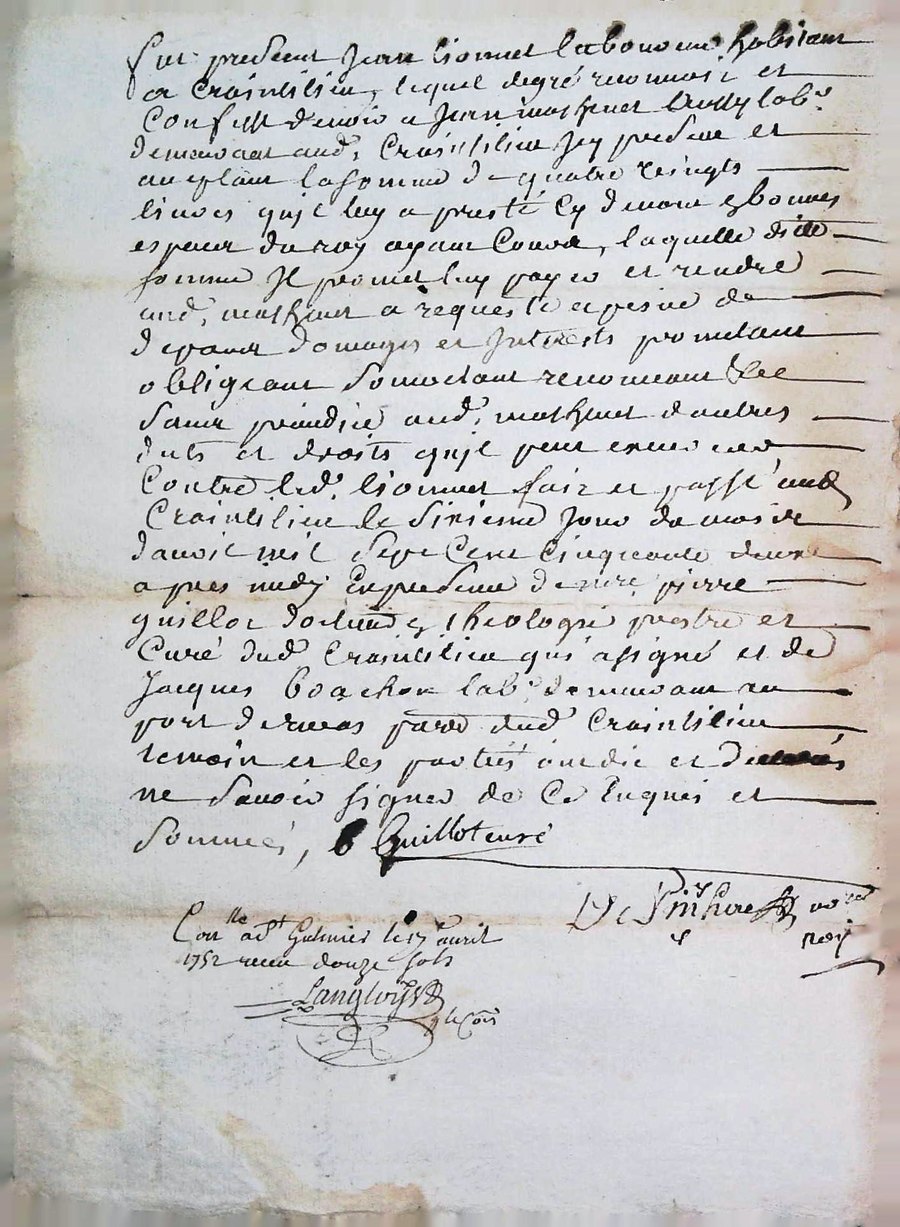 fut present Jean lionnet laboureur habitant
a Craintilieu, lequel degré reconnoit et
Confesse devoir a Jean mathinet aussy lab.r
demeurant aud. Craintilieu Icy present et
aceptant la somme de quatre veingts
livres qu'il luy a presté Cy devant en bonnes
especes du roy ayant Cours, laquelle ditte
somme Il promet luy payer et rendre
aud. mathinet a requeste a peine de
depans domages et Interests promettant
obligeant Soumettant renonceant &c
Sans prejudice aud. mathinet dautres
duts et droits qu'il peut
Contre led. lionnet fait et passé aud.
Craintilieu le Sixieme Jour du mois
davril mil Sept Cent Cinquante deux
apres midy En presence de Pierre
guillot docteur en theologie prestre et
Curé dud. Craintilieu qui a signé et de
Jacques lab.r demeurant au
port paroisse dud. Craintilieu
temoin et les parties ont dit et
ne Savoir signer de Ce Enquis et
Sommés, Guillot curé
no.re
roy.
Con.lle a S.t Galmier le 17 avril
1752 receu douze sols
Langlois